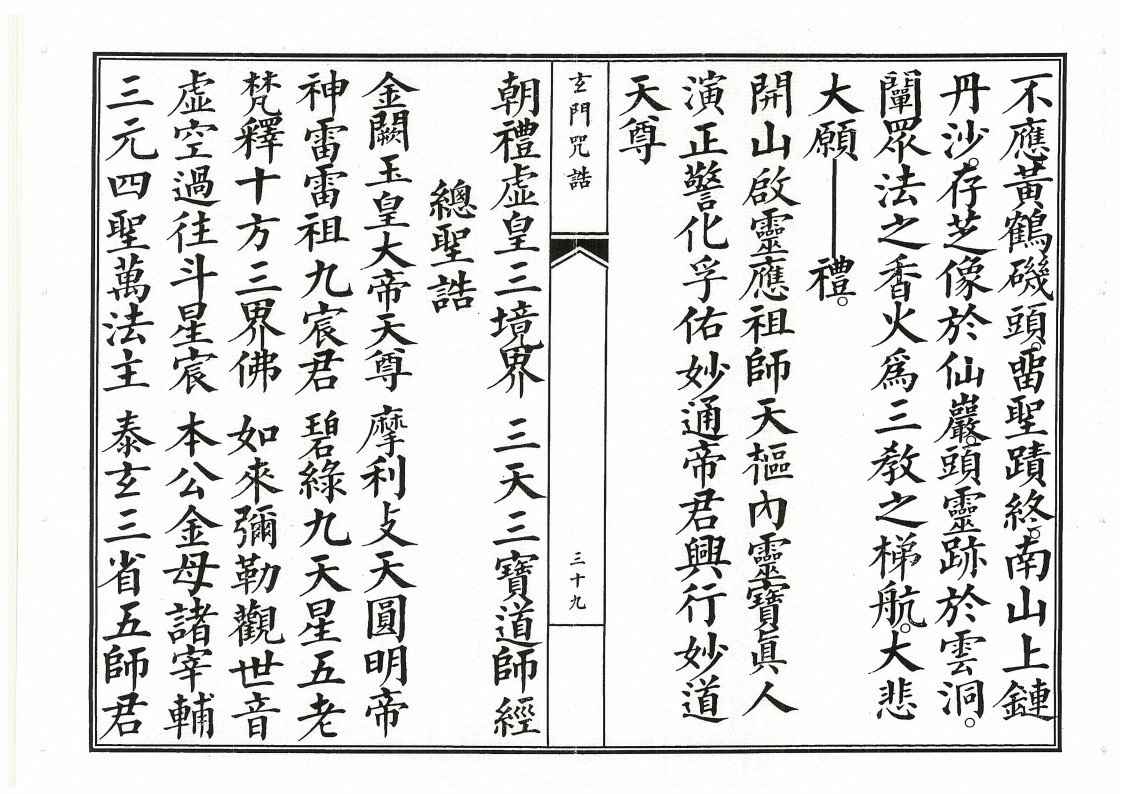 不應黃鶴磯頭。畱聖蹟終。南山上鏈
丹沙。存芝像於仙巖。頭靈跡於雲洞。
闡眾法之香火爲三教之梯航。大悲
大願——禮。
開山啟靈應祖師天樞內靈寶眞人
演正警化孚佑妙通帝君興行妙道
天尊
玄門咒誥
三十九
總聖誥
朝禮虛皇三境界 三天三寶道師經
金闕玉皇大帝天尊 摩利攴天圓明帝
神雷雷祖九宸君 碧綠九天星五老
梵釋十方三界佛 如來彌勒觀世音
虛空過往斗星宸 本公金母諸宰輔
三元四聖萬法主 泰玄三省五師君